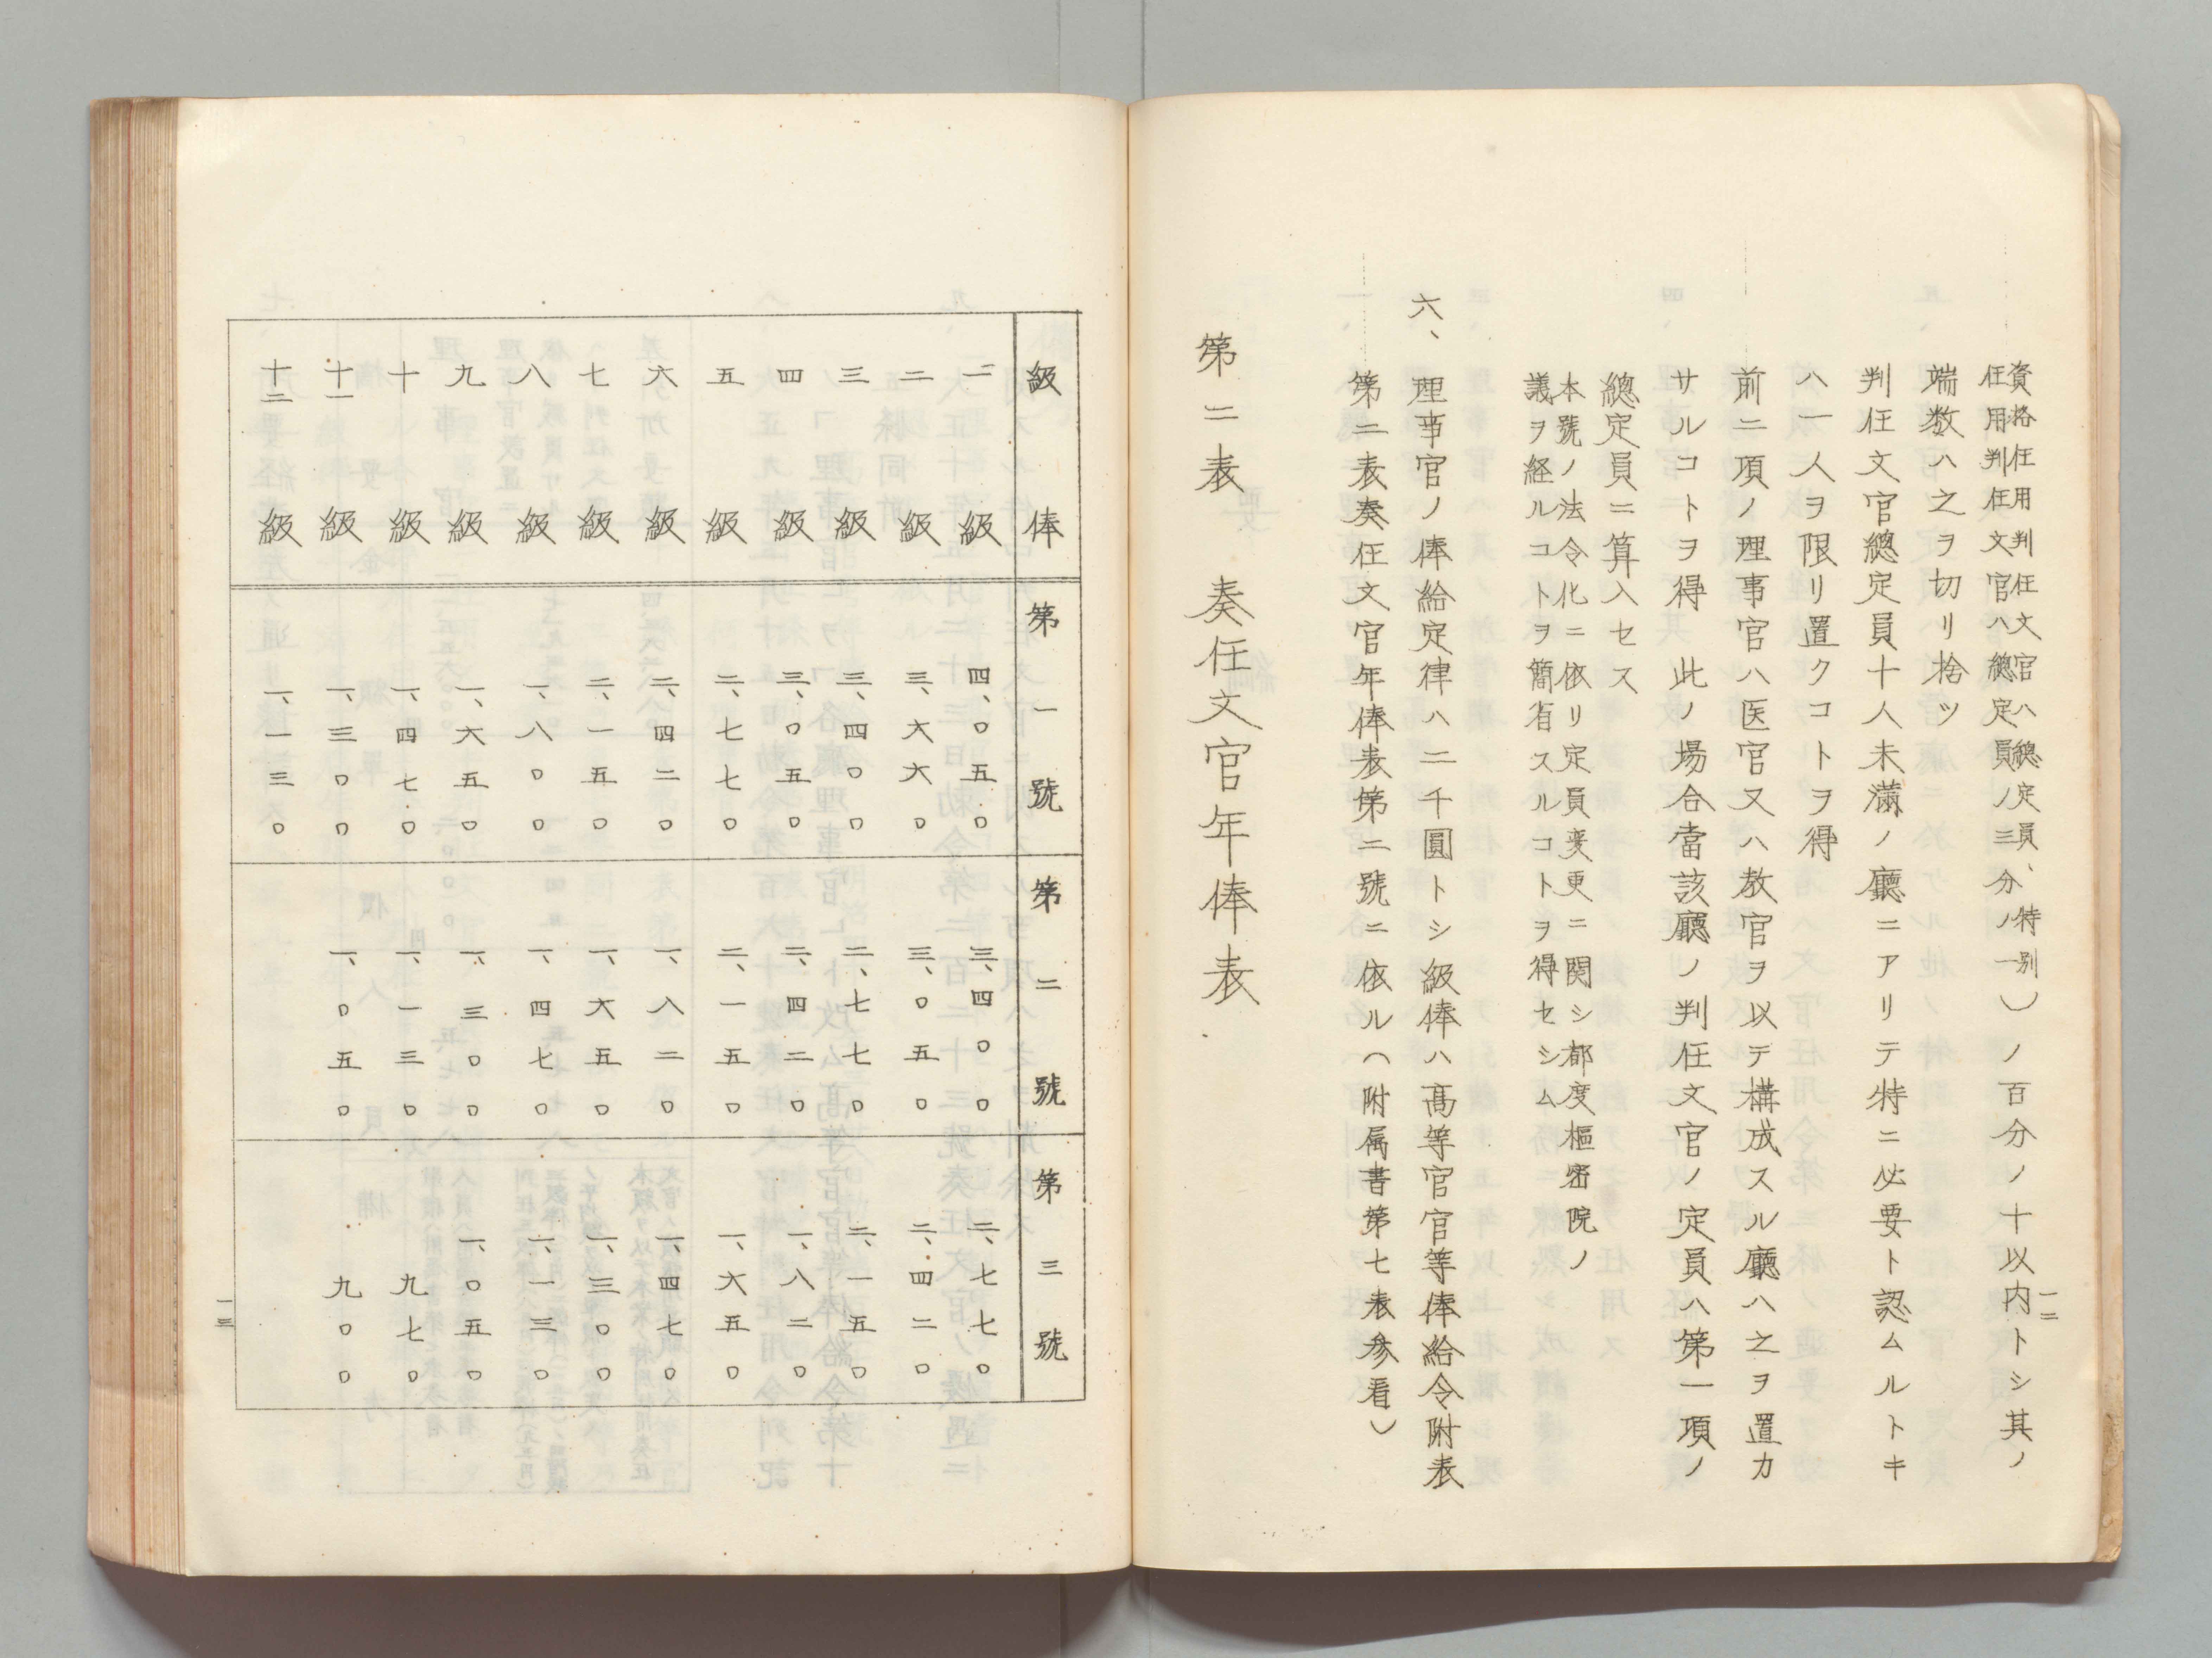 一二
資格任用判任文官ハ總定員、特別
任用判任文官ハ總定員ノ三分ノ一)
ノ百分ノ十以内トシ其ノ
端数ハ之ヲ切リ捨ツ
判任文官總定員十人未滿ノ廳ニアリテ特ニ必要ト認ムルトキ
ハ一人ヲ限リ置クコトヲ得
前二項ノ理事官ハ医官又ハ教官ヲ以テ構成スル廳ハ之ヲ置カ
サルコトヲ得 此ノ場合當該廳ノ判任文官ノ定員ハ第一項ノ
總定員ニ算入セス
本號ノ法令化ニ依リ定員変更ニ関シ都度樞密院ノ
議ヲ経ルコトヲ簡省スルコトヲ得セシム
六、理事官ノ俸給定律ハ二千圓トシ級俸ハ高等官官等俸給令附表
第二表奏任文官年俸表第二號ニ依ル(附属書第七表参看)
第二表 奏任文官年俸表
級俸 第一號 第二號 第三號
一級 四、〇五〇 三、四〇〇 二、七七〇
二級 三、六六〇 三、〇五〇 二、四二〇
三級 三、四〇〇 二、七七〇 二、一五〇
四級 三、〇五〇 二、四二〇 一、八二〇
五級 二、七七〇 二、一五〇 一、六五〇
六級 二、四二〇 一、八二〇 一、四七〇
七級 二、一五〇 一、六五〇 一、三〇〇
八級 一、八〇〇 一、四七〇 一、一三〇
九級 一、六五〇 一、三〇〇 一、〇五〇
十級 一、四七〇 一、一三〇 九七〇
十一級 一、三〇〇 一、〇五〇 九〇〇
十二級 一、一三〇
一三